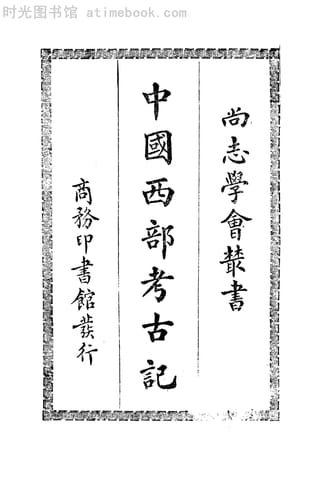 时光图书馆 atimebook.com
尚志學會叢書
中國西部考古記
商務印書館發行